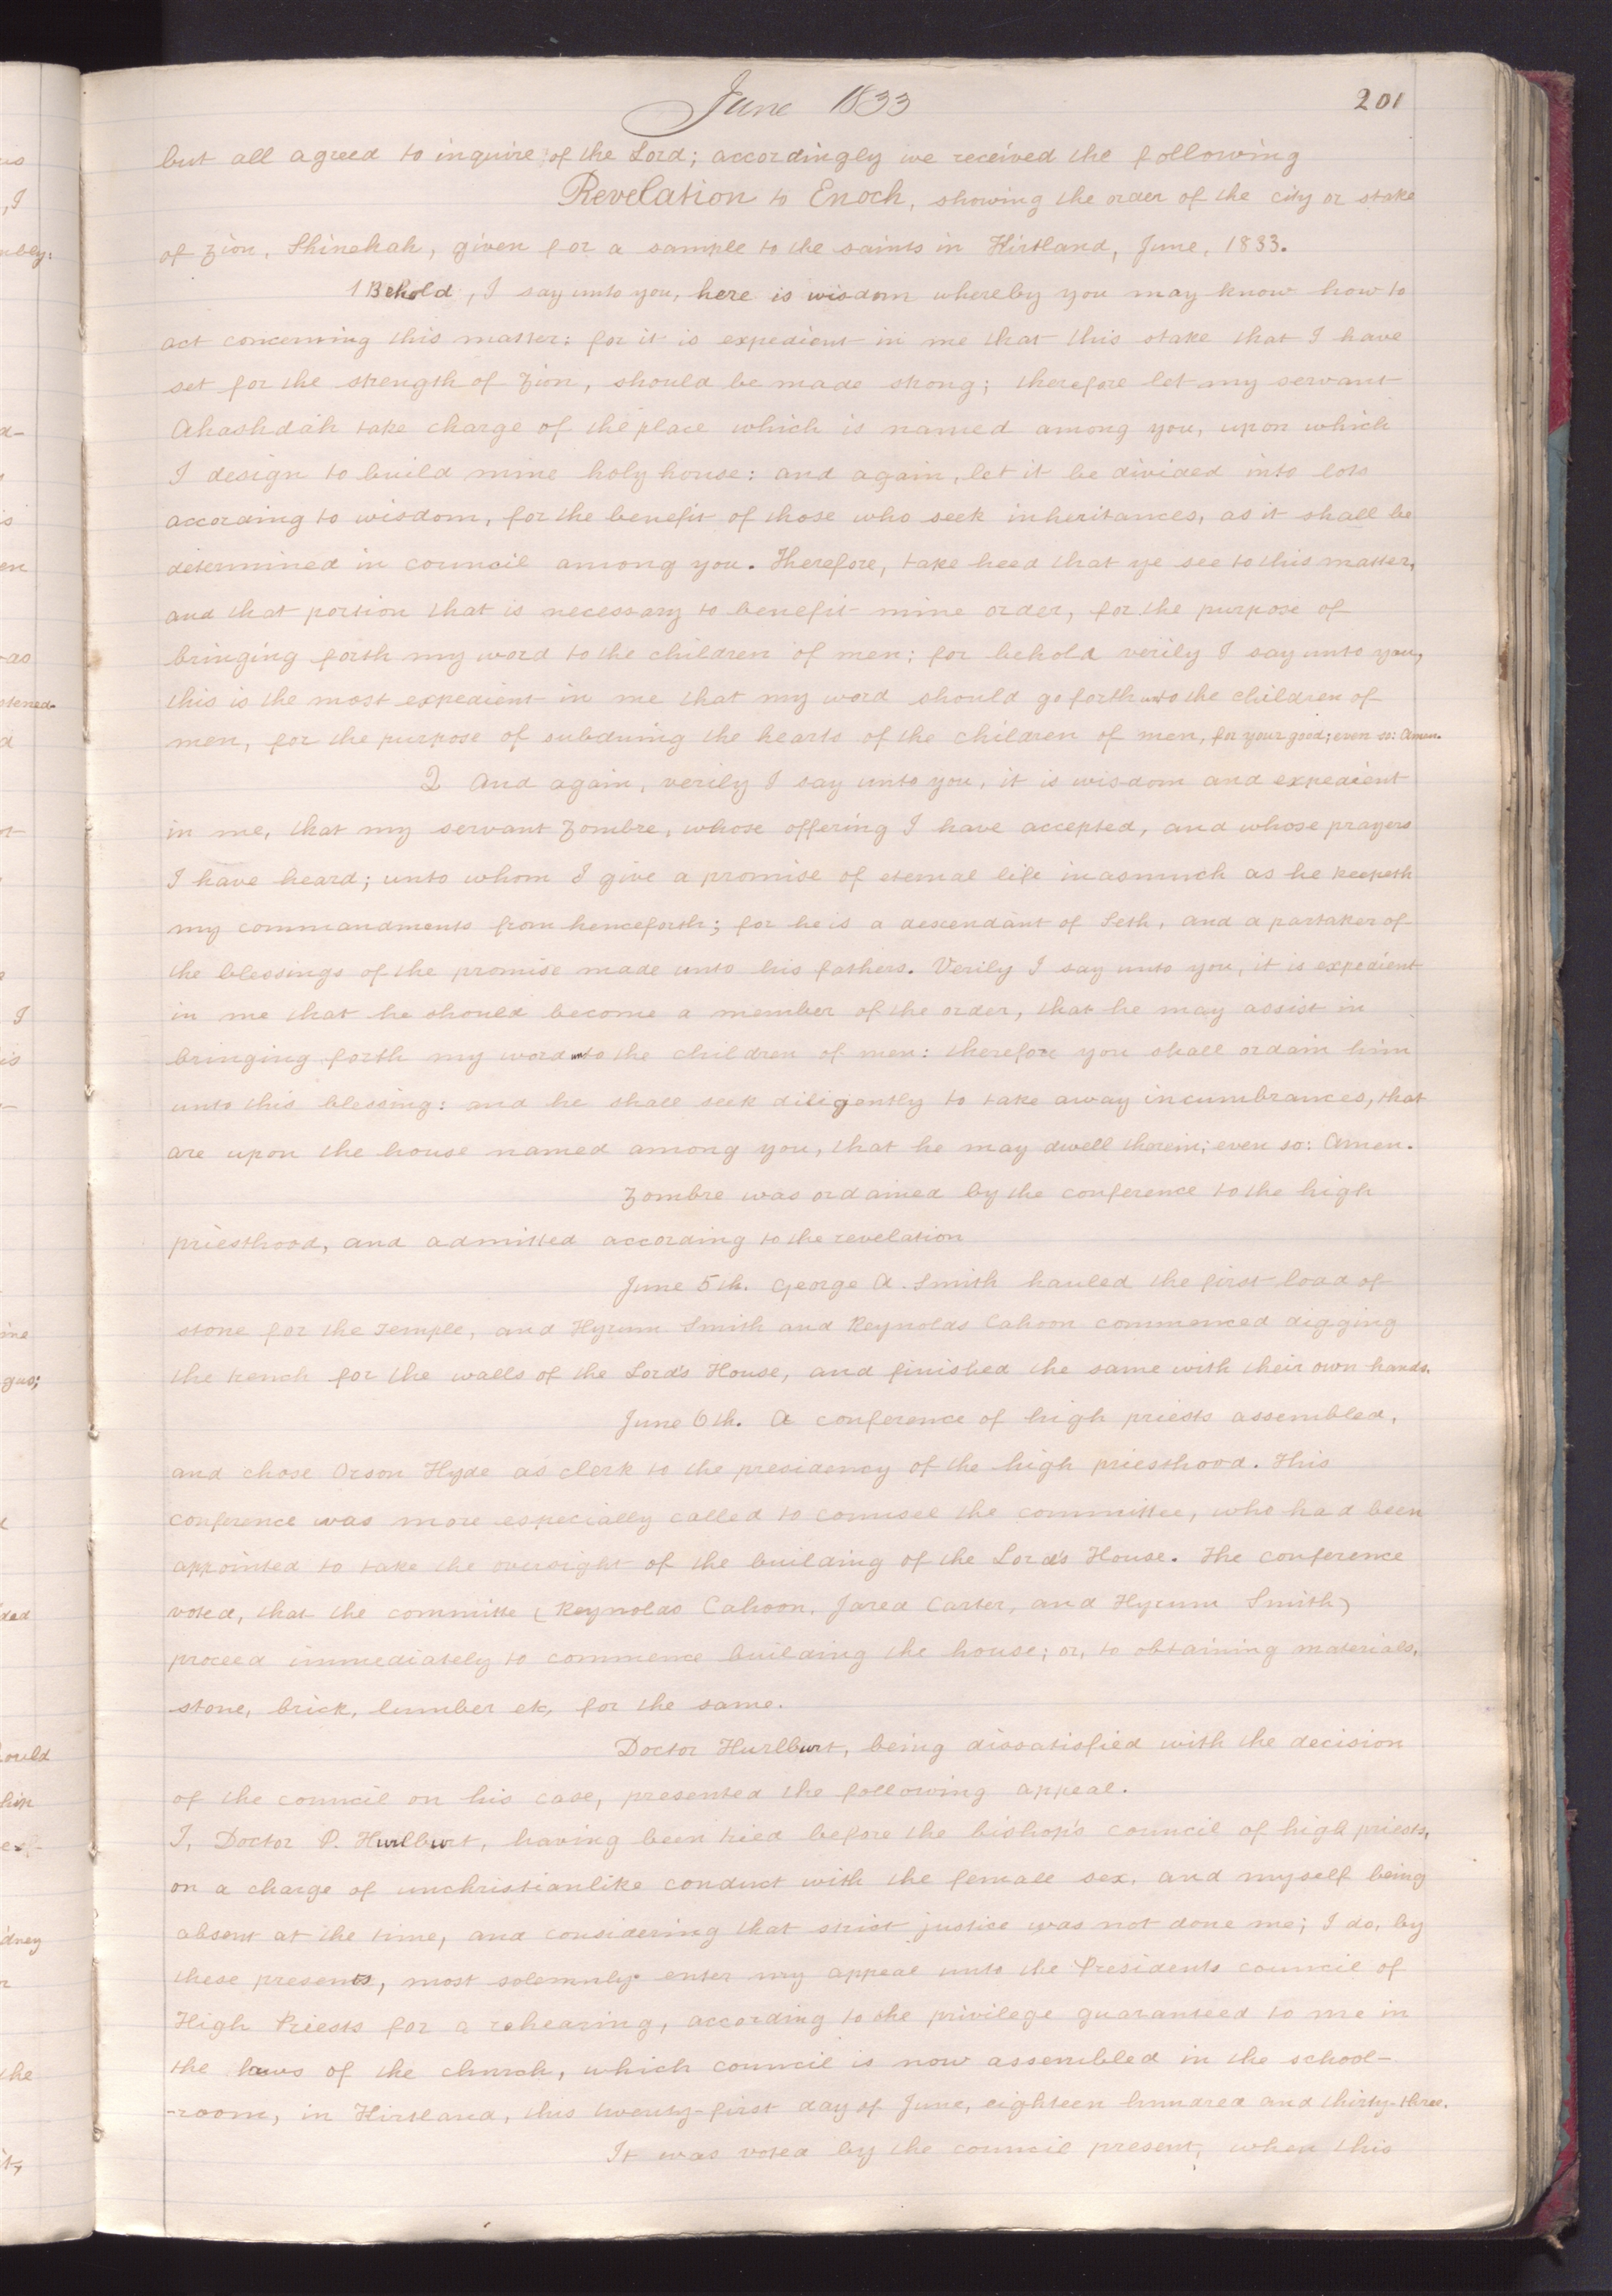 June 1833
201
but all agreed to inquire of the Lord; accordingly we received the following
Revelation to Enoch, showing the order of the city or stake
of Zion, Shinehah, given for a sample to the saints in Kirtland, June, 1833.
1 Behold, I say unto you, here is wisdom whereby you may know how to
act concerning this matter: for it is expedient in me that this stake that I have
set for the strength of Zion, should be made strong; therefore let my servant
Ahashdah take charge of the place which is named among you, upon which
I design to build mine holy house: and again, let it be divided into lots
according to wisdom, for the benefit of those who seek inheritances, as it shall be
determined in council among you. Therefore, take heed that ye see to this matter,
and that portion that is necessary to benefit mine order, for the purpose of
bringing forth my word to the children of men; for behold verily I say unto you,
this is the most expedient in me that my word should go forth unto the children of
men, for the purpose of subduing the hearts of the children of men, for your good; even so: Amen.
2 And again, verily I say unto you, it is wisdom and expedient
in me, that my servant Zombre, whose offering I have accepted, and whose prayers
I have heard; unto whom I give a promise of eternal life inasmuch as he keepeth
my commandments from henceforth; for he is a descendant of Seth, and a partaker of
the blessings of the promise made unto his fathers. Verily I say unto you, it is expedient
in me that he should become a member of the order, that he may assist in
bringing forth my word unto the children of men: therefore you shall ordain him
unto this blessing: and he shall seek diligently to take away incumbrances, that
are upon the house named among you, that he may dwell therein; even so: Amen.
Zombre was ordained by the conference to the high
priesthood, and admitted according to the revelation
June 5th. George A. Smith hauled the first load of
stone for the Temple, and Hyrum Smith and Reynolds Cahoon commenced digging
the trench for the walls of the Lord's House, and finished the same with their own hands.
June 6th. A conference of high priests assembled,
and chose Orson Hyde as clerk to the presidency of the high priesthood. This
conference was more especially called to counsel the committee, who had been
appointed to take the oversight of the building of the Lord's House. The conference
voted, that the committe (Reynolds Cahoon, Jared Carter, and Hyrum Smith)
proceed immediately to commence building the house; or, to obtaining materials,
stone, brick, lumber etc, for the same.
Doctor Hurlburt, being dissatisfied with the decision
of the council on his case, presented the following appeal.
I, Doctor P. Hurlburt, having been tried before the bishop's council of high priests,
on a charge of unchristianlike conduct with the female sex, and myself being
absent at the time, and considering that strict justice was not done me; I do, by
these presents, most solemnly enter my appeal unto the Presidents council of
High Priests for a rehearing, according to the privilege guaranteed to me in
the laws of the church, which council is now assembled in the school-
-room, in Kirtland, this twenty-first day of June, eighteen hundred and thirty-three.
It was voted by the council present, when this